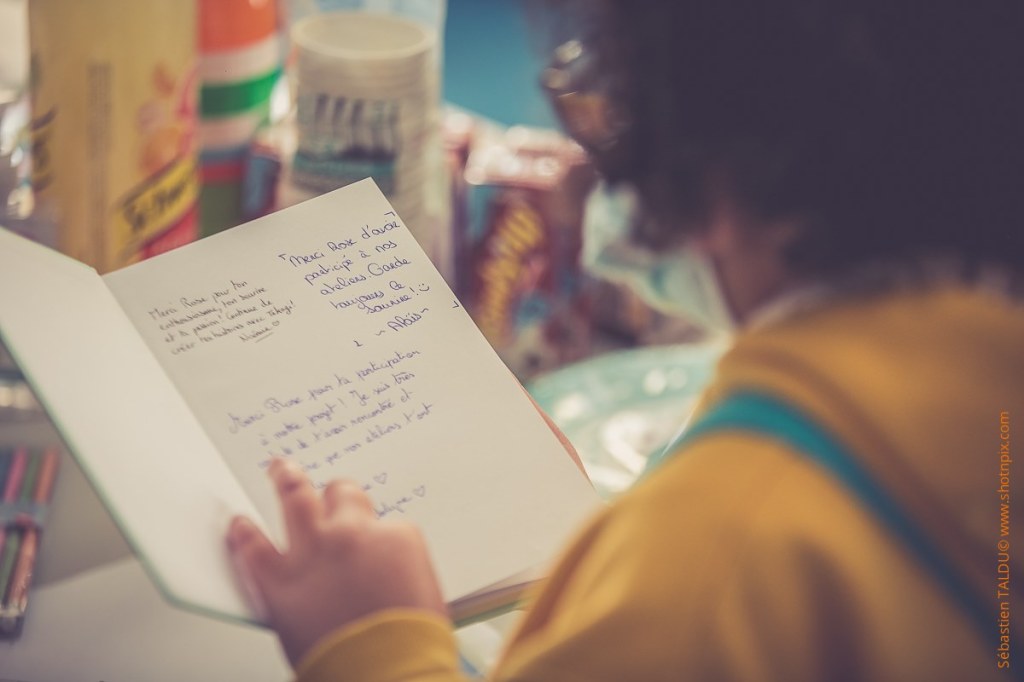 Merci Rose pour ton
enthousiasme, ton sourire
et ta passion! Continue de
créer tes histoires avec
"Merci Rose d'avoir
participé à nos
ateliers. Garde
toujours ce
sourire! ☺
~ Alaïs ~
Merci Rose pour ta participation
à notre projet! Je suis très
de t'avoir rencontré et
que nos ateliers t'ont
♡
♡
Sébastien TALDU© www.shotnpix.com